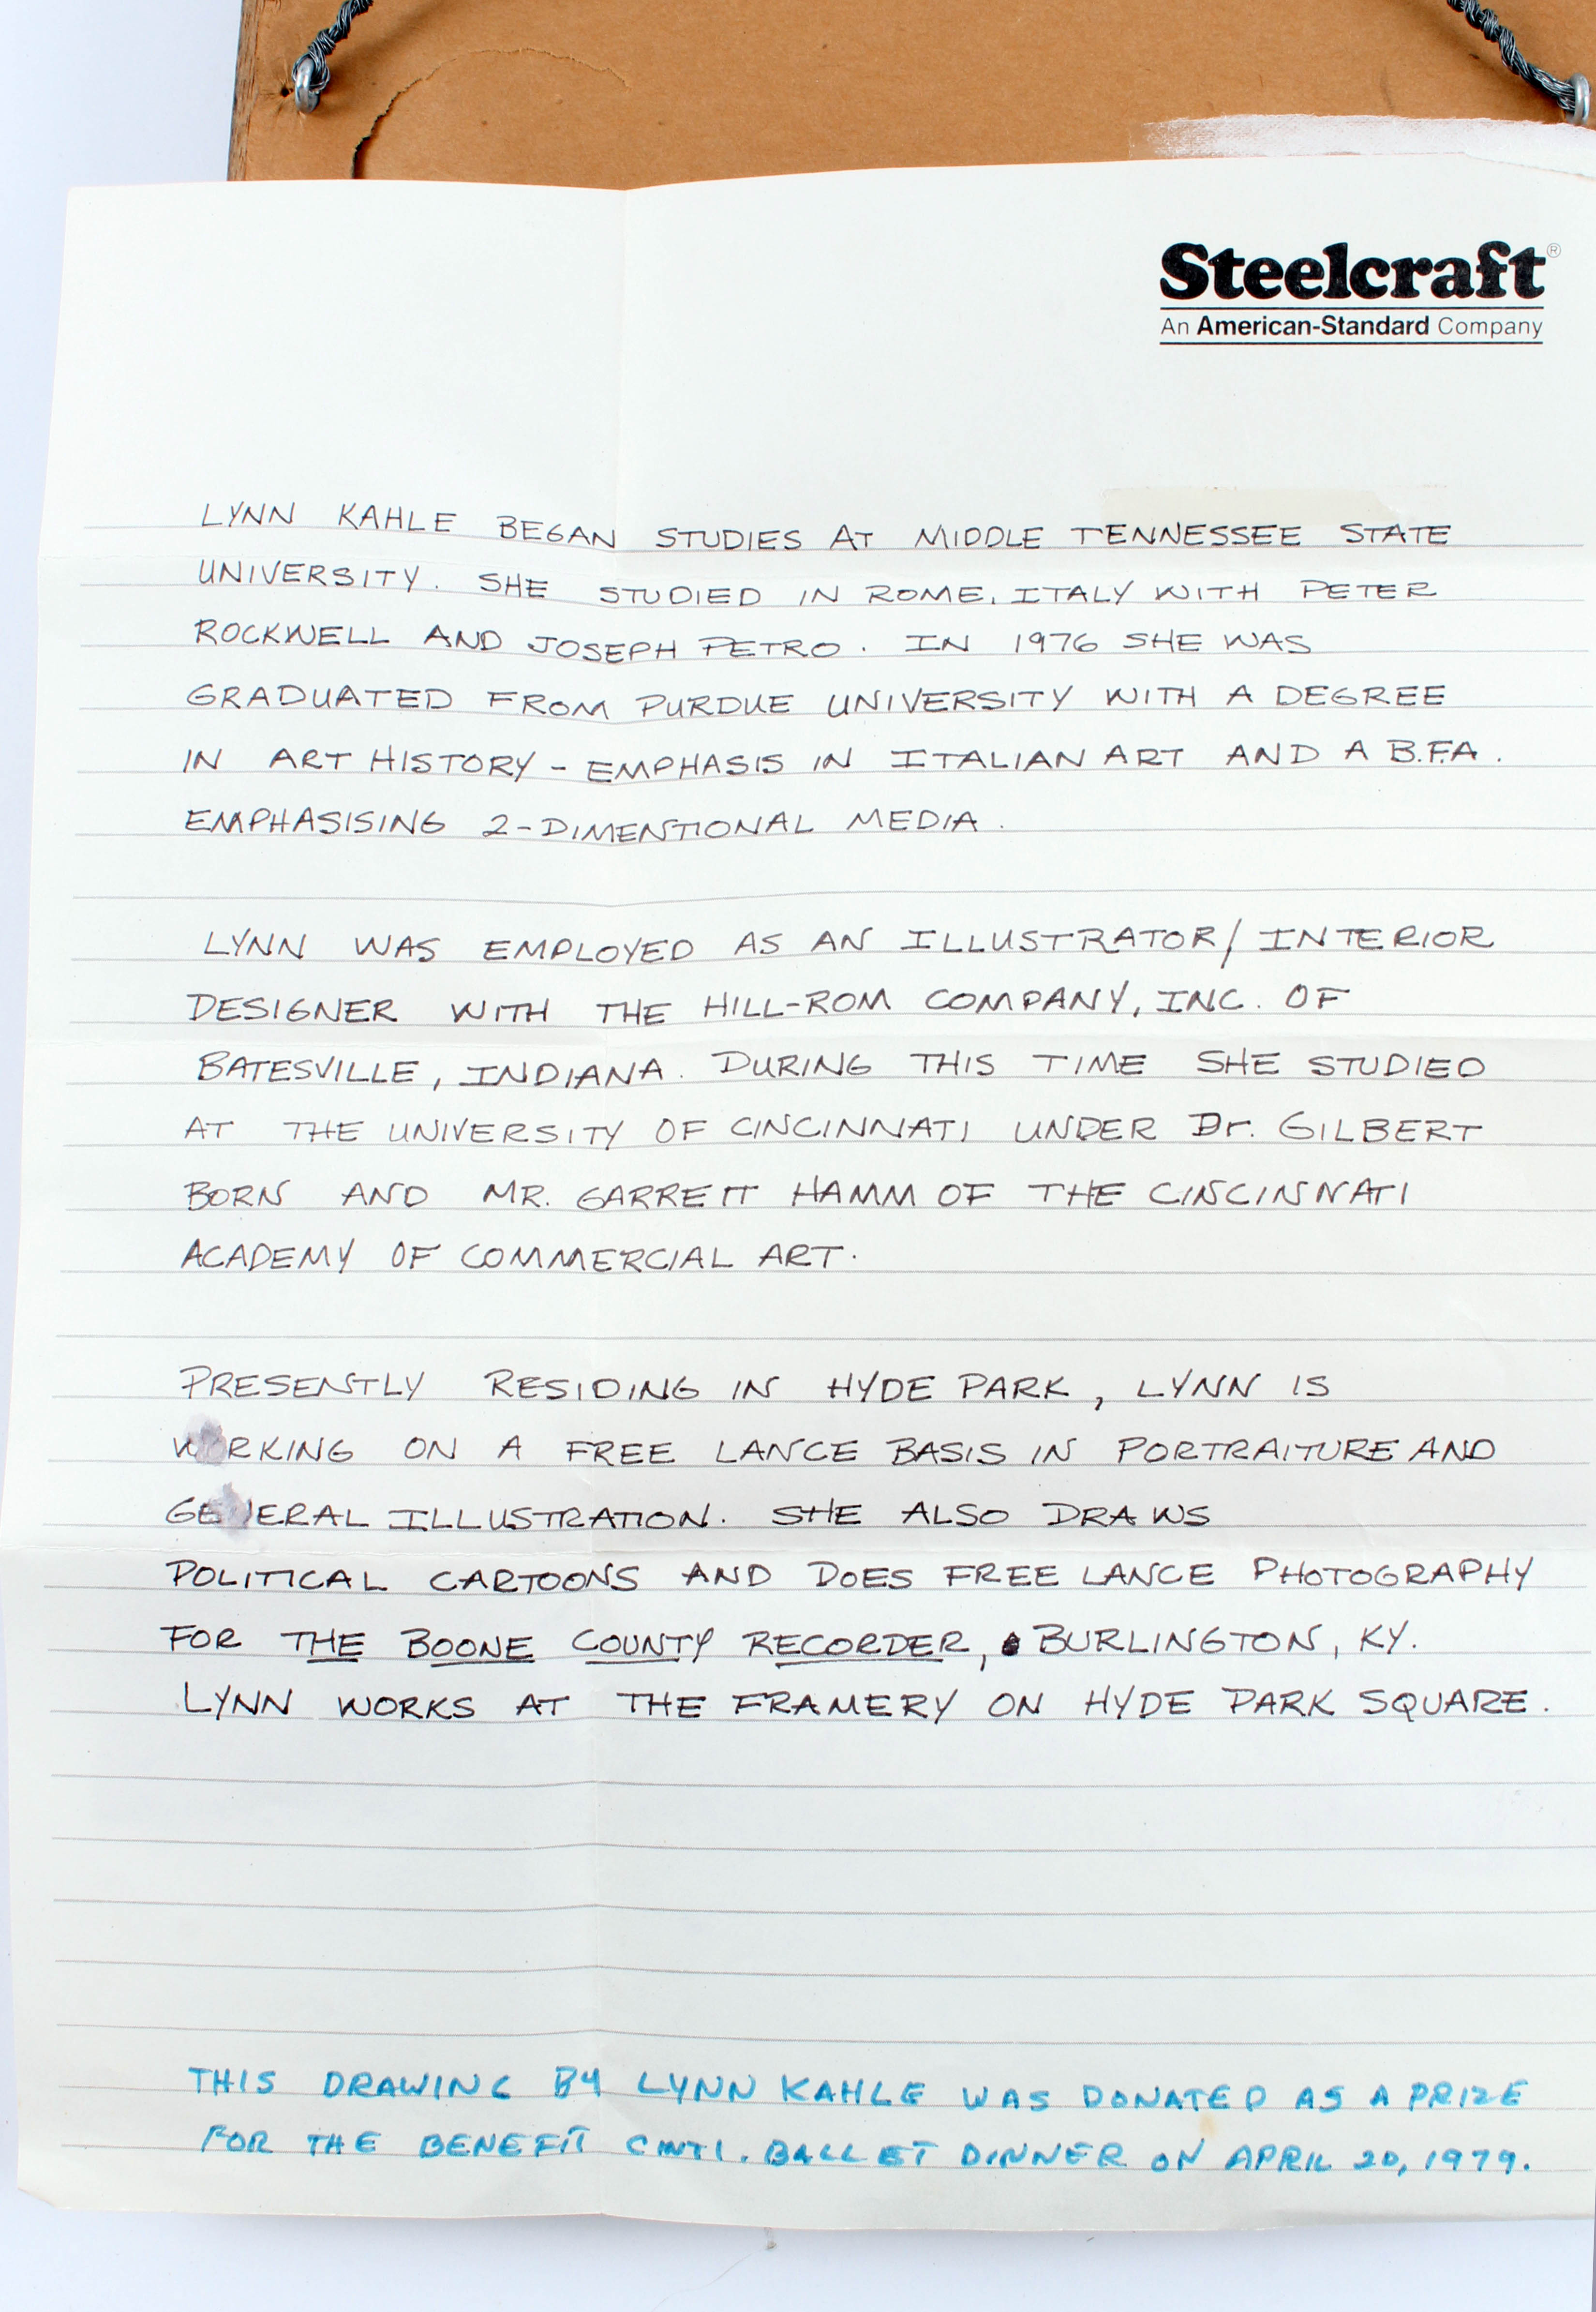 Steelcraft®
An American-Standard Company
LYNN KAHLE BEGAN STUDIES AT MIDDLE TENNESSEE STATE
UNIVERSITY. SHE STUDIED IN ROME, ITALY WITH PETER
ROCKWELL AND JOSEPH PETRO. IN 1976 SHE WAS
GRADUATED FROM PURDUE UNIVERSITY WITH A DEGREE
IN ART HISTORY - EMPHASIS IN ITALIAN ART AND A B.F.A.
EMPHASISING 2-DIMENTIONAL MEDIA.
LYNN WAS EMPLOYED AS AN ILLUSTRATOR/INTERIOR
DESIGNER WITH THE HILL-ROM COMPANY, INC. OF
BATESVILLE, INDIANA. DURING THIS TIME SHE STUDIED
AT THE UNIVERSITY OF CINCINNATI UNDER Dr. GILBERT
BORN AND MR. GARRETT HAMM OF THE CINCINNATI
ACADEMY OF COMMERCIAL ART.
PRESENTLY RESIDING IN HYDE PARK, LYNN IS
WORKING ON A FREE LANCE BASIS IN PORTRAITURE AND
GENERAL ILLUSTRATION. SHE ALSO DRAWS
POLITICAL CARTOONS AND DOES FREE LANCE PHOTOGRAPHY
FOR THE BOONE COUNTY RECORDER, BURLINGTON, KY.
LYNN WORKS AT THE FRAMERY ON HYDE PARK SQUARE.
THIS DRAWING BY LYNN KAHLE WAS DONATED AS A PRIZE
FOR THE BENEFIT CINTI. BALLET DINNER ON APRIL 20, 1979.